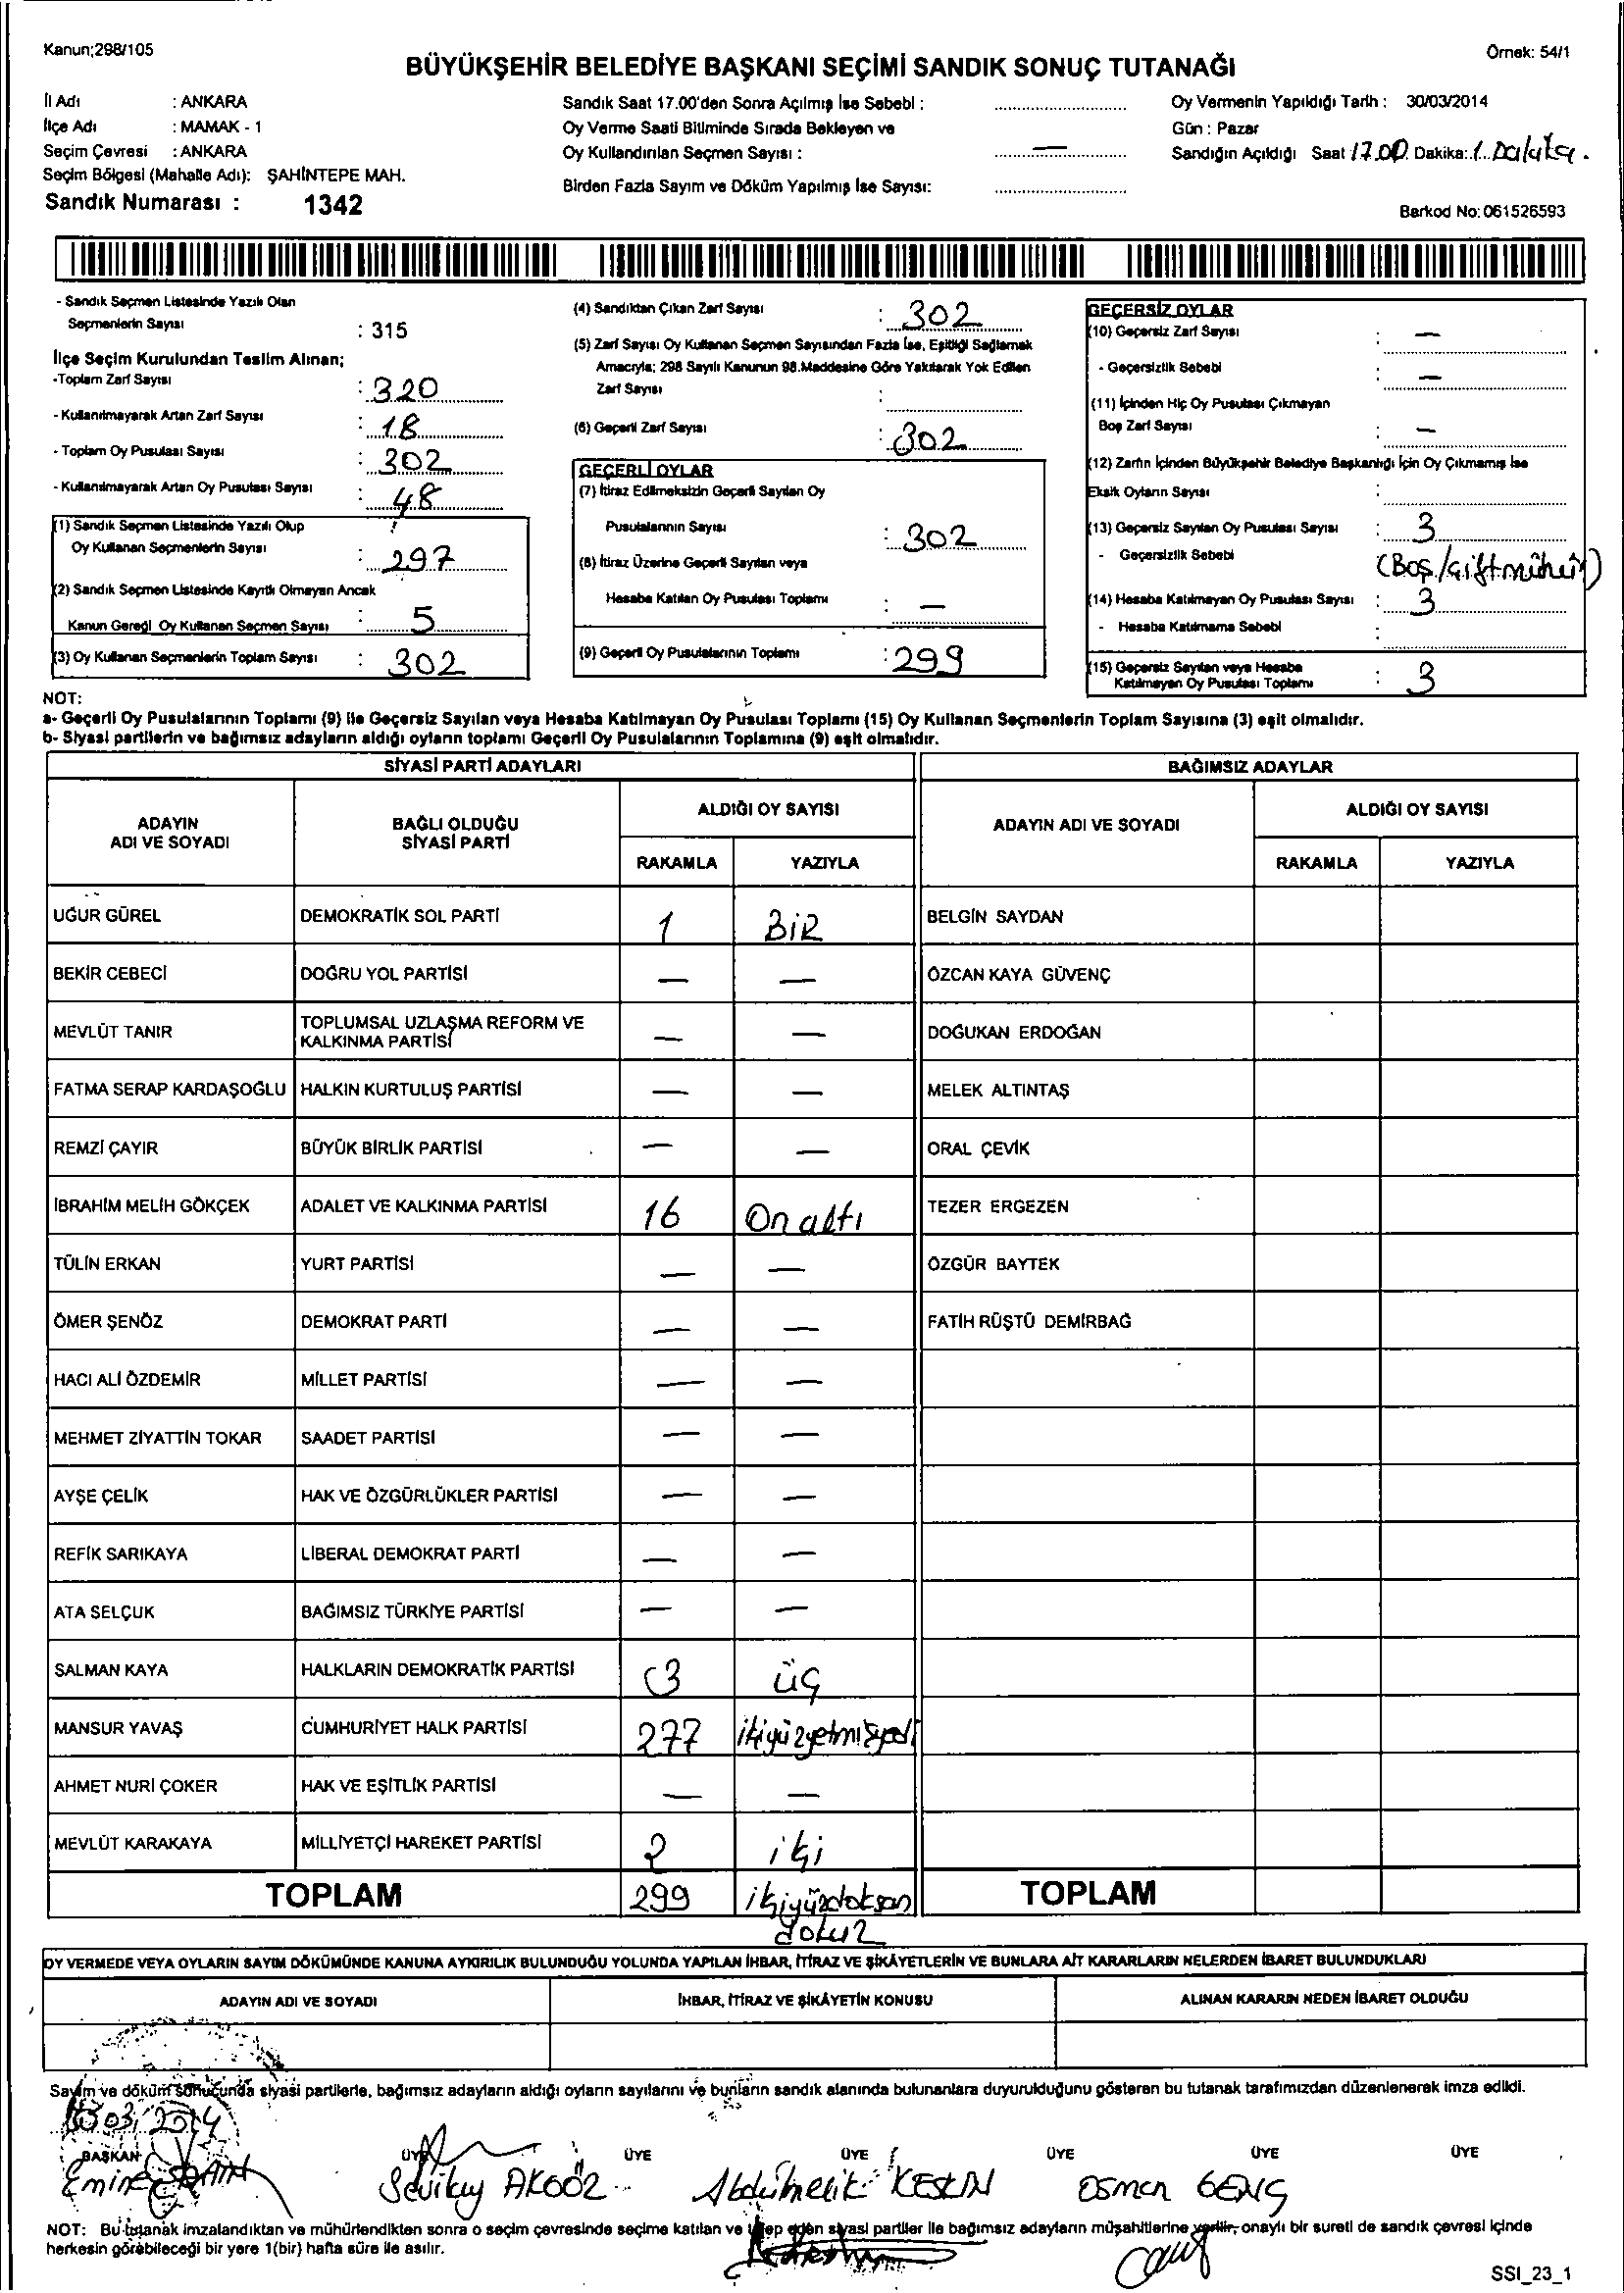 Kanun;298/105
Örnek: 54/1
BÜYÜKŞEHİR BELEDİYE BAŞKANI SEÇİMİ SANDIK SONUÇ TUTANAĞI
İl Adı : ANKARA
İlçe Adı : MAMAK - 1
Seçim Çevresi : ANKARA
Seçim Bölgesi (Mahalle Adı): ŞAHİNTEPE MAH.
Sandık Numarası : 1342
Sandık Saat 17.00'den Sonra Açılmış İse Sebebi : ..............................
Oy Verme Saati Bitiminde Sırada Bekleyen ve
Oy Kullandırılan Seçmen Sayısı : —
Birden Fazla Sayım ve Döküm Yapılmış İse Sayısı: ..............................
Oy Vermenin Yapıldığı Tarih : 30/03/2014
Gün : Pazar
Sandığın Açıldığı Saat 17.00 Dakika: 1. Dakika.
Barkod No: 061526593
- Sandık Seçmen Listesinde Yazılı Olan
Seçmenlerin Sayısı : 315
İlçe Seçim Kurulundan Teslim Alınan;
-Toplam Zarf Sayısı : 320
- Kullanılmayarak Artan Zarf Sayısı : 18
- Toplam Oy Pusulası Sayısı : 302
- Kullanılmayarak Artan Oy Pusulası Sayısı : 48
(1) Sandık Seçmen Listesinde Yazılı Olup
Oy Kullanan Seçmenlerin Sayısı : 297
(2) Sandık Seçmen Listesinde Kayıtlı Olmayan Ancak
Kanun Gereği Oy Kullanan Seçmen Sayısı : 5
(3) Oy Kullanan Seçmenlerin Toplam Sayısı : 302
(4) Sandıktan Çıkan Zarf Sayısı : 302
(5) Zarf Sayısı Oy Kullanan Seçmen Sayısından Fazla İse, Eşitliği Sağlamak
Amacıyla; 298 Sayılı Kanunun 98.Maddesine Göre Yakılarak Yok Edilen
Zarf Sayısı :
(6) Geçerli Zarf Sayısı : 302
GEÇERLİ OYLAR
(7) İtiraz Edilmeksizin Geçerli Sayılan Oy
Pusulalarının Sayısı : 302
(8) İtiraz Üzerine Geçerli Sayılan veya
Hesaba Katılan Oy Pusulası Toplamı : —
(9) Geçerli Oy Pusulalarının Toplamı : 299
GEÇERSİZ OYLAR
(10) Geçersiz Zarf Sayısı : —
- Geçersizlik Sebebi : —
(11) İçinden Hiç Oy Pusulası Çıkmayan
Boş Zarf Sayısı : —
(12) Zarfın İçinden Büyükşehir Belediye Başkanlığı İçin Oy Çıkmamış İse
Eksik Oyların Sayısı :
(13) Geçersiz Sayılan Oy Pusulası Sayısı : 3
- Geçersizlik Sebebi (Boş/çift mühür)
(14) Hesaba Katılmayan Oy Pusulası Sayısı : 3
- Hesaba Katılmama Sebebi :
(15) Geçersiz Sayılan veya Hesaba
Katılmayan Oy Pusulası Toplamı : 3
NOT:
a- Geçerli Oy Pusulalarının Toplamı (9) ile Geçersiz Sayılan veya Hesaba Katılmayan Oy Pusulası Toplamı (15) Oy Kullanan Seçmenlerin Toplam Sayısına (3) eşit olmalıdır.
b- Siyasi partilerin ve bağımsız adayların aldığı oyların toplamı Geçerli Oy Pusulalarının Toplamına (9) eşit olmalıdır.
SİYASİ PARTİ ADAYLARI BAĞIMSIZ ADAYLAR
ADAYIN ADI VE SOYADI BAĞLI OLDUĞU SİYASİ PARTİ ALDIĞI OY SAYISI ADAYIN ADI VE SOYADI ALDIĞI OY SAYISI
RAKAMLA YAZIYLA RAKAMLA YAZIYLA
UĞUR GÜREL DEMOKRATİK SOL PARTİ 1 BİR BELGİN SAYDAN
BEKİR CEBECİ DOĞRU YOL PARTİSİ — — ÖZCAN KAYA GÜVENÇ
MEVLÜT TANIR TOPLUMSAL UZLAŞMA REFORM VE KALKINMA PARTİSİ — — DOĞUKAN ERDOĞAN
FATMA SERAP KARDAŞOĞLU HALKIN KURTULUŞ PARTİSİ — — MELEK ALTINTAŞ
REMZİ ÇAYIR BÜYÜK BİRLİK PARTİSİ — — ORAL ÇEVİK
İBRAHİM MELİH GÖKÇEK ADALET VE KALKINMA PARTİSİ 16 On altı TEZER ERGEZEN
TÜLİN ERKAN YURT PARTİSİ — — ÖZGÜR BAYTEK
ÖMER ŞENÖZ DEMOKRAT PARTİ — — FATİH RÜŞTÜ DEMİRBAĞ
HACI ALİ ÖZDEMİR MİLLET PARTİSİ — —
MEHMET ZİYATTİN TOKAR SAADET PARTİSİ — —
AYŞE ÇELİK HAK VE ÖZGÜRLÜKLER PARTİSİ — —
REFİK SARIKAYA LİBERAL DEMOKRAT PARTİ — —
ATA SELÇUK BAĞIMSIZ TÜRKİYE PARTİSİ — —
SALMAN KAYA HALKLARIN DEMOKRATİK PARTİSİ 3 üç
MANSUR YAVAŞ CUMHURİYET HALK PARTİSİ 277 ikiyüzyetmişyedi
AHMET NURİ ÇOKER HAK VE EŞİTLİK PARTİSİ — —
MEVLÜT KARAKAYA MİLLİYETÇİ HAREKET PARTİSİ 2 iki
TOPLAM 299 ikiyüzdoksan TOPLAM
dokuz
OY VERMEDE VEYA OYLARIN SAYIM DÖKÜMÜNDE KANUNA AYKIRILIK BULUNDUĞU YOLUNDA YAPILAN İHBAR, İTİRAZ VE ŞİKÂYETLERİN VE BUNLARA AİT KARARLARIN NELERDEN İBARET BULUNDUKLARI
ADAYIN ADI VE SOYADI İHBAR, İTİRAZ VE ŞİKÂYETİN KONUSU ALINAN KARARIN NEDEN İBARET OLDUĞU
Sayım ve döküm sonucunda siyasi partilerle, bağımsız adayların aldığı oyların sayılarını ve bunların sandık alanında bulunanlara duyurulduğunu gösteren bu tutanak tarafımızdan düzenlenerek imza edildi.
03 2014
BAŞKAN ÜYE ÜYE ÜYE ÜYE ÜYE ÜYE
Emine Sevilay AKGÖZ Abdülmelik KESKİN OSMAN GENÇ
NOT: Bu tutanak imzalandıktan ve mühürlendikten sonra o seçim çevresinde seçime katılan ve talep eden siyasi partiler ile bağımsız adayların müşahitlerine verilir, onaylı bir sureti de sandık çevresi içinde
herkesin görebileceği bir yere 1(bir) hafta süre ile asılır.
SSI_23_1